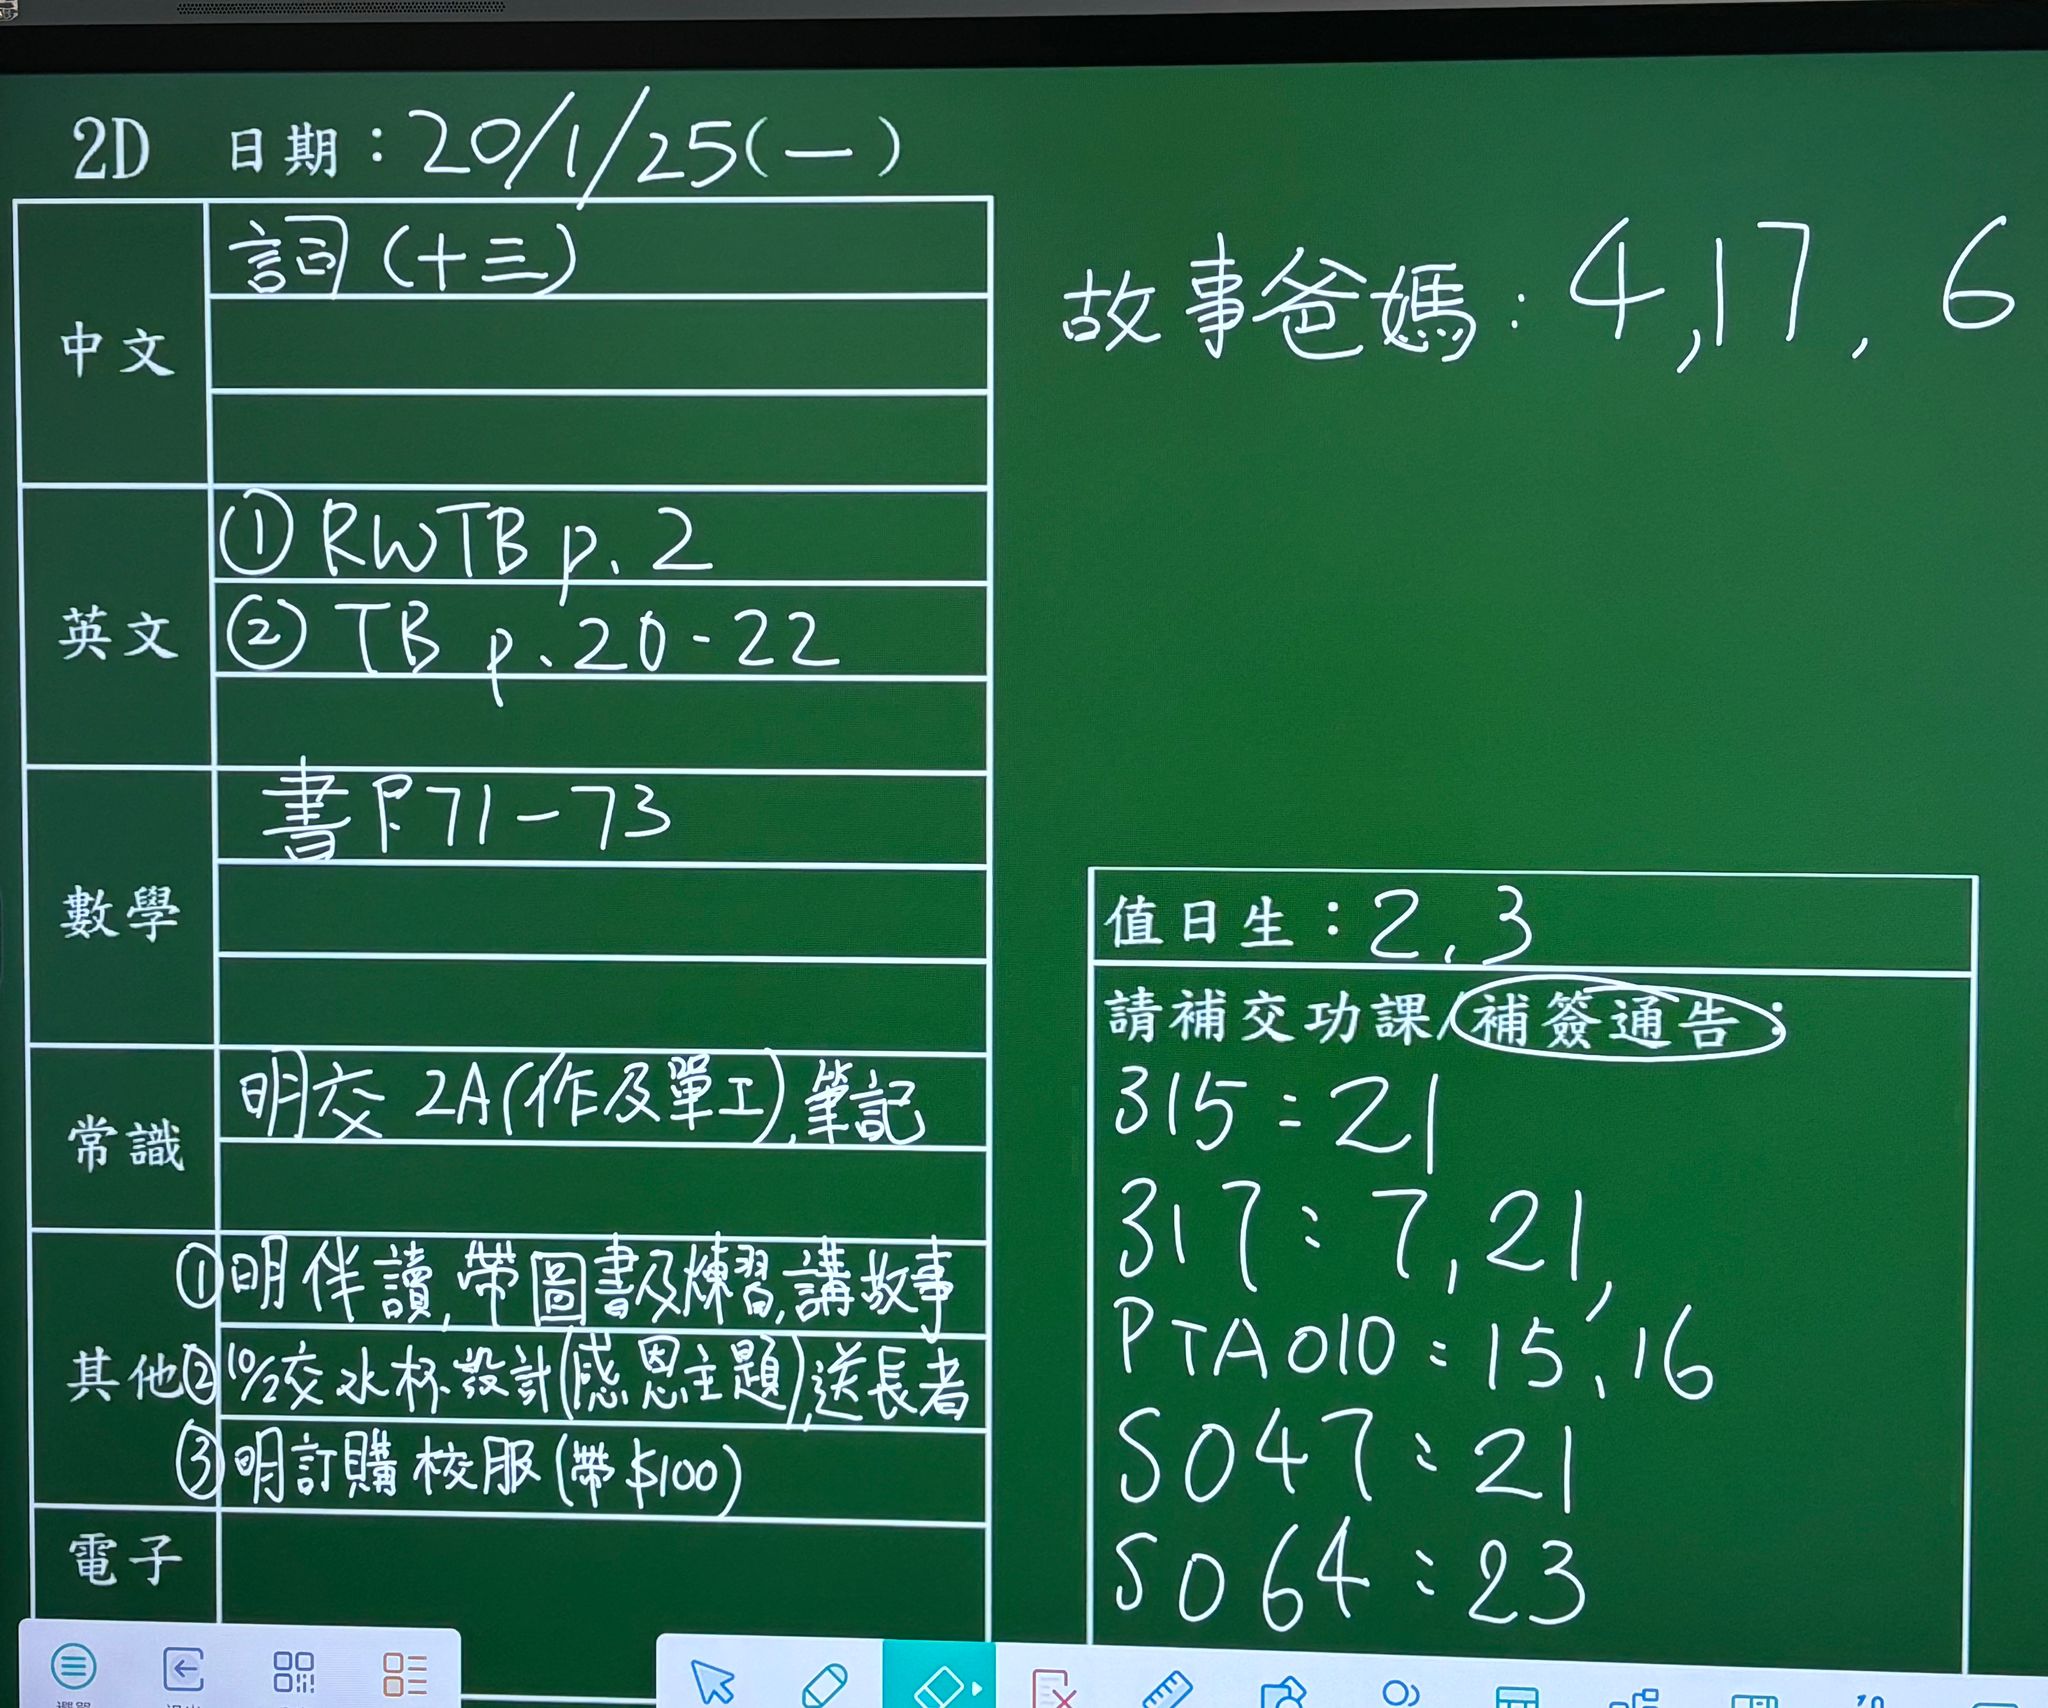 2D 日期：20/1/25(一)
中文
詞(十三)
英文
① RWTB p.2
② TB p.20-22
數學
書P.71-73
常識
明交 2A(作及單工),筆記
其他
①明伴讀,帶圖書及練習,講故事
②10/2交水杯設計(感恩主題),送長者
③明訂購校服(帶$100)
電子
故事爸媽：4,17,6
值日生：2,3
請補交功課/補簽通告：
315：21
317：7,21,
PTA010：15,16
S047：21
S064：23